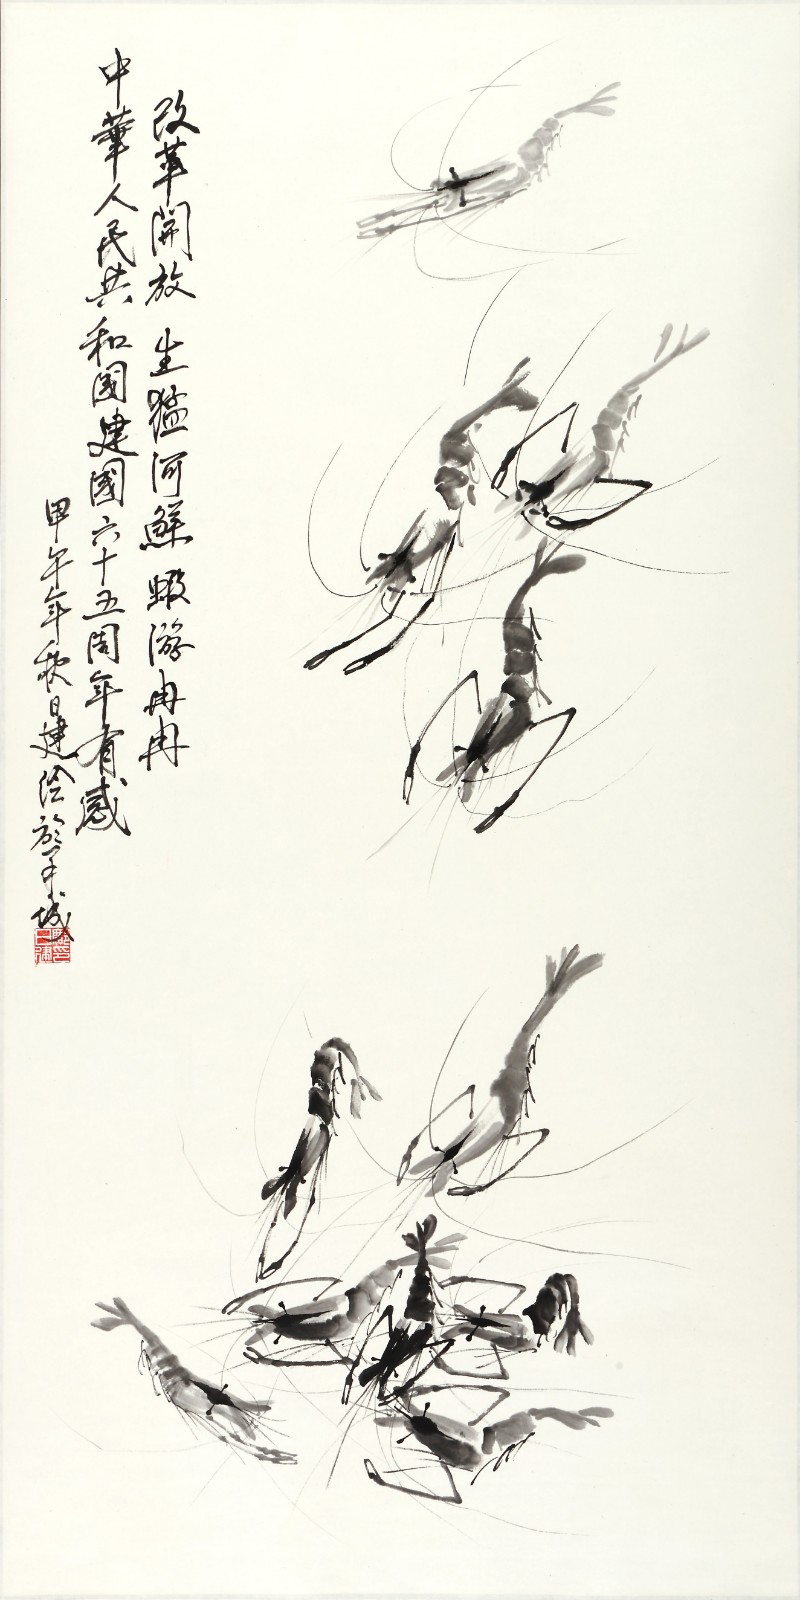 改革開放 生猛河鮮 蝦游冉冉
中華人民共和國建國六十五周年有感
甲午年秋日建绘於羊城